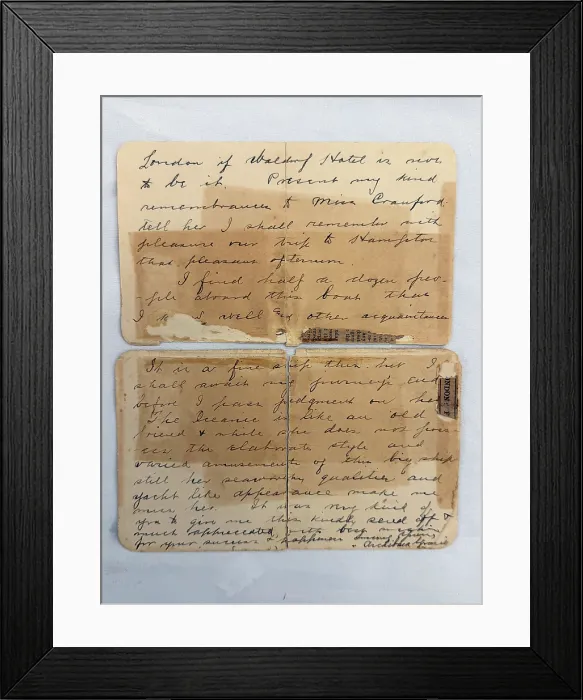 London if Waldorf Hotel is sure
to be it. Present my kind
remembrances to Miss Crawford.
tell her I shall remember with
pleasure our trip to Hampton
that pleasant afternoon.
I find half a dozen peo-
ple aboard this boat that
I well & other acquaintances
It is a fine ship this, but I
shall await my journey's end
before I pass judgment on her
The Oceanic is like an old
friend & while she does not
the elaborate style and
varied amusements of this big ship
still her seaworthy qualities and
yacht like appearance make me
miss her. It was very kind of
you to give me this kindly send off &
much appreciated, with best wishes
for your success & happiness
Archibald Gracie